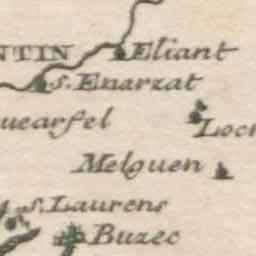 NTIN Eliant
S. Enarzat
uearfel
Locr
Melguen
S. Laurens
Buzec